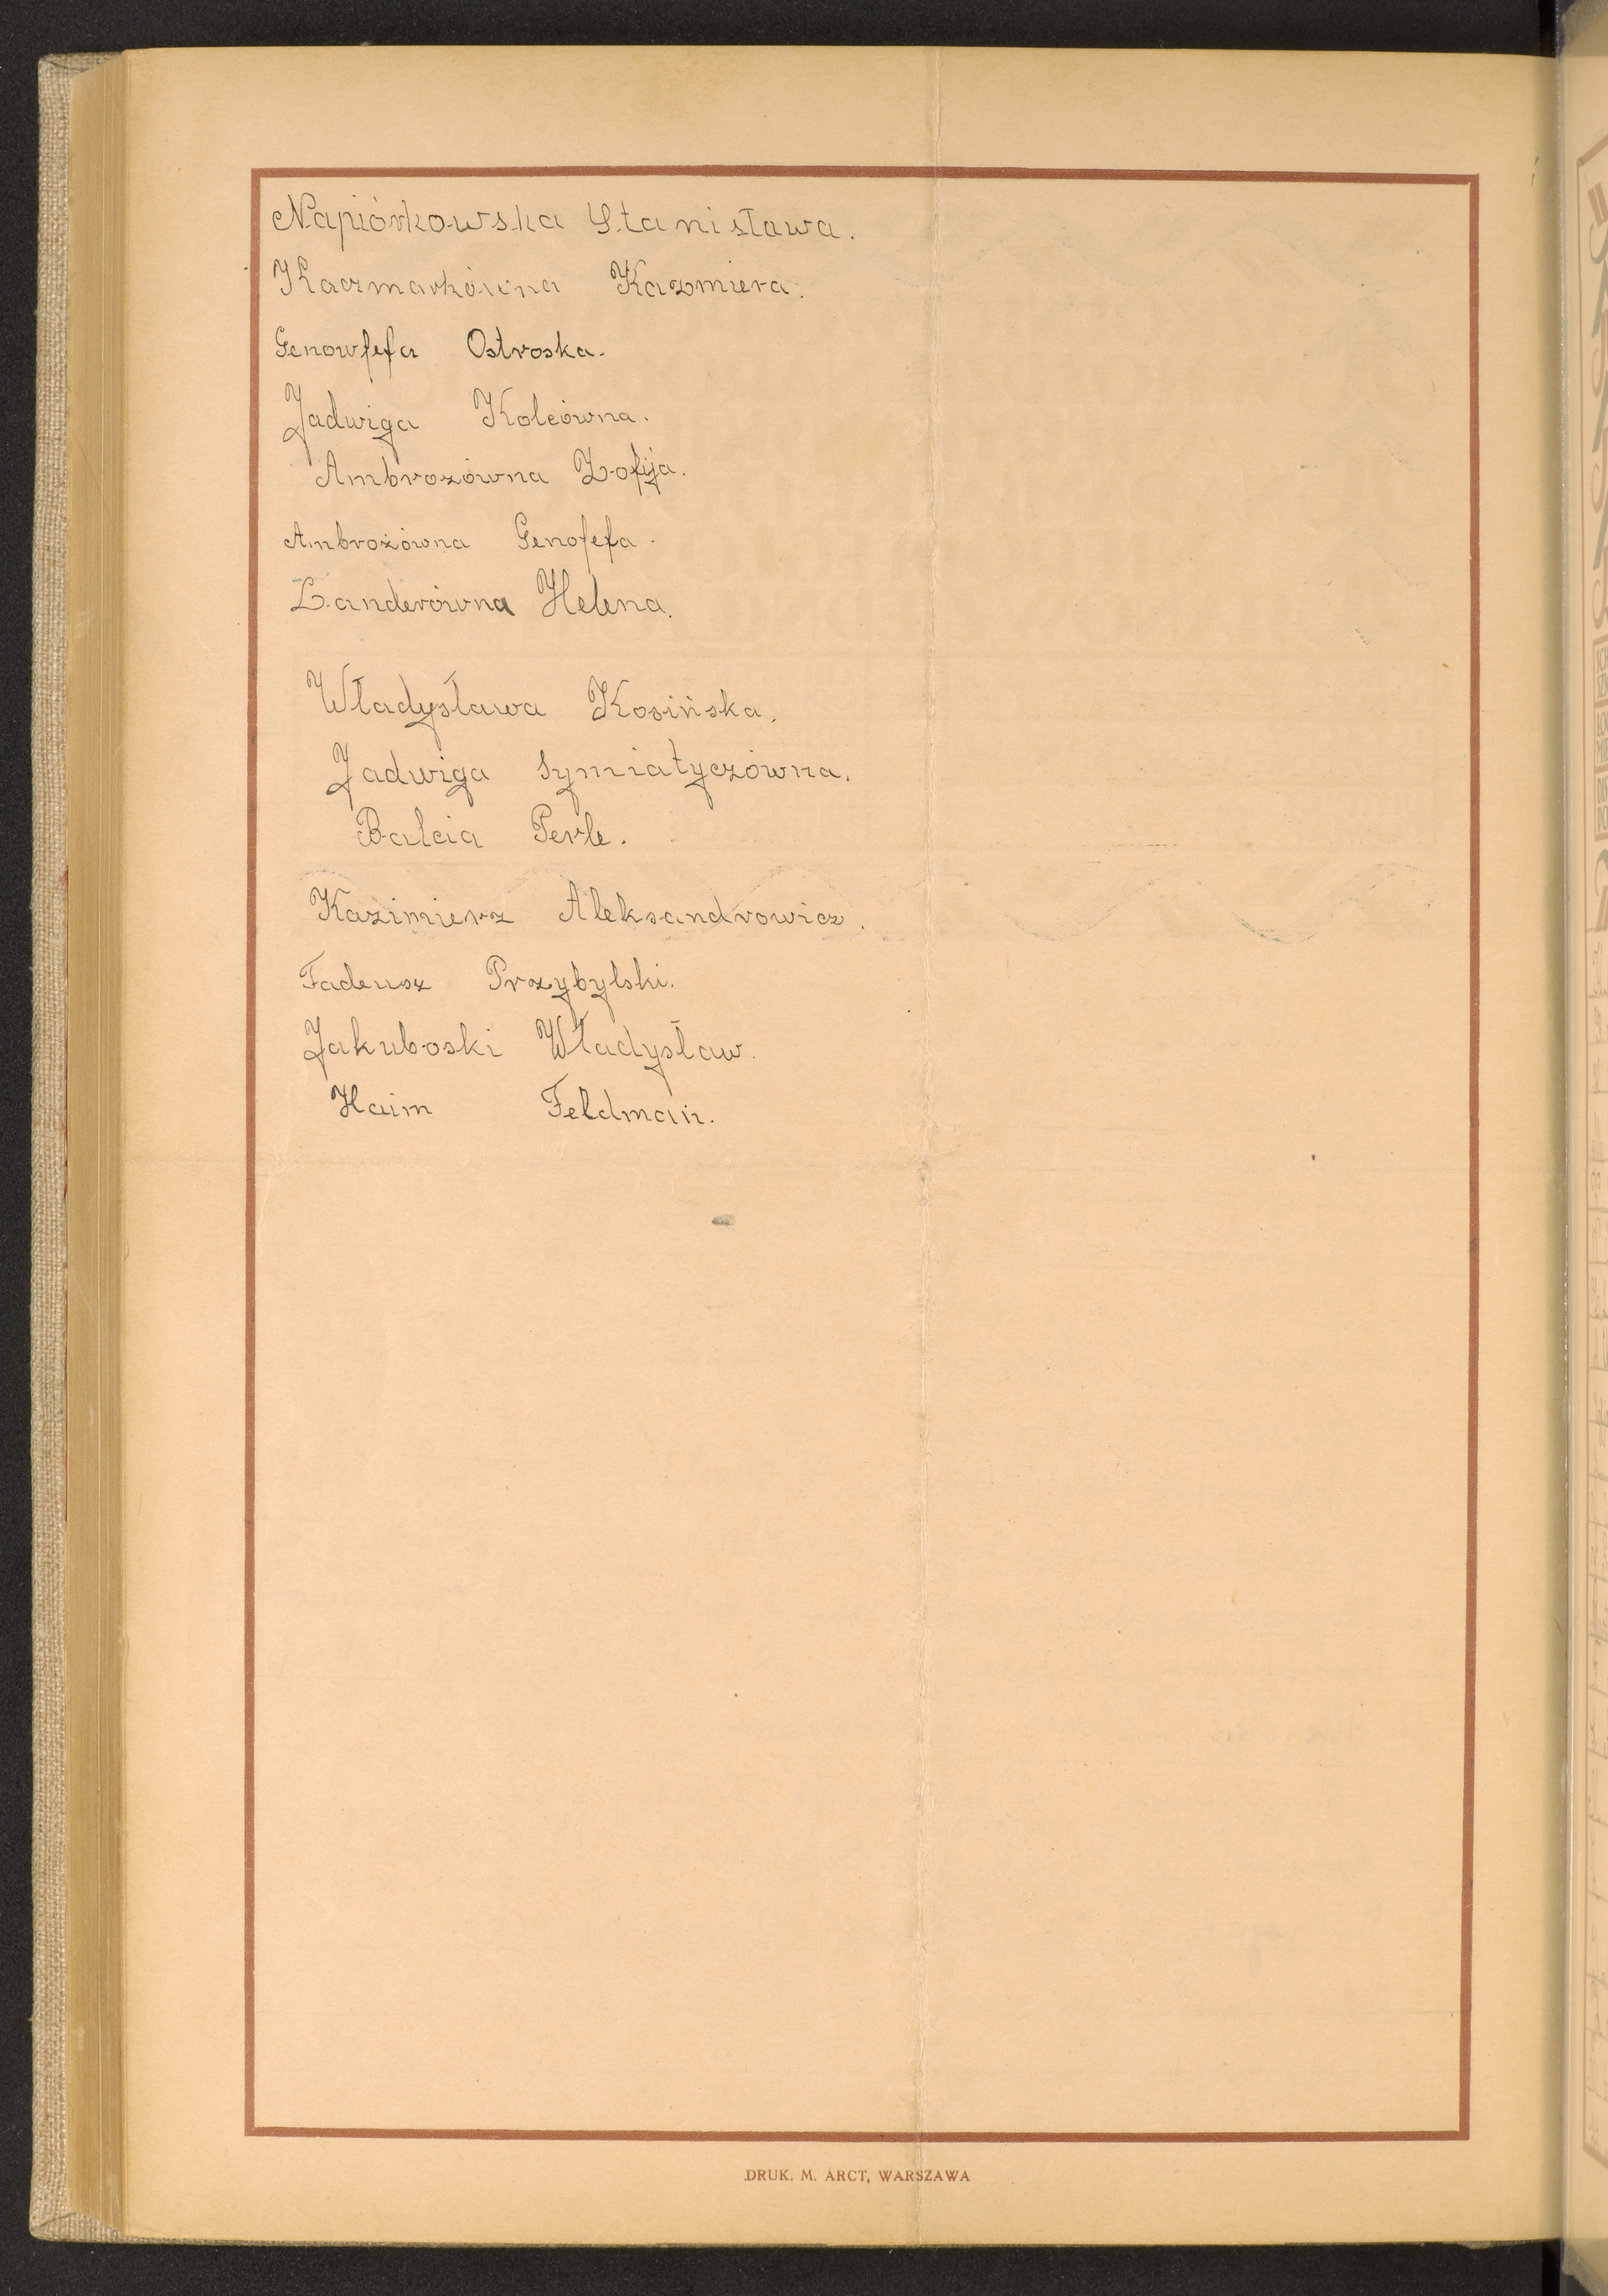 Napiórkowska Stanisława.
Kaczmarkówna Kazmiera.
Genowfefa Ostroska.
Jadwiga Kolcówna.
Ambrozówna Zofija.
Ambrożówna Genofefa.
Landerówna Helena.
Władysława Kosińska.
Jadwiga Symiatyczówna.
Balcia Perle.
Kazimierz Aleksandrowicz.
Tadeusz Przybylski.
Jakuboski Władysław.
Haim Feldman.
DRUK. M. ARCT, WARSZAWA